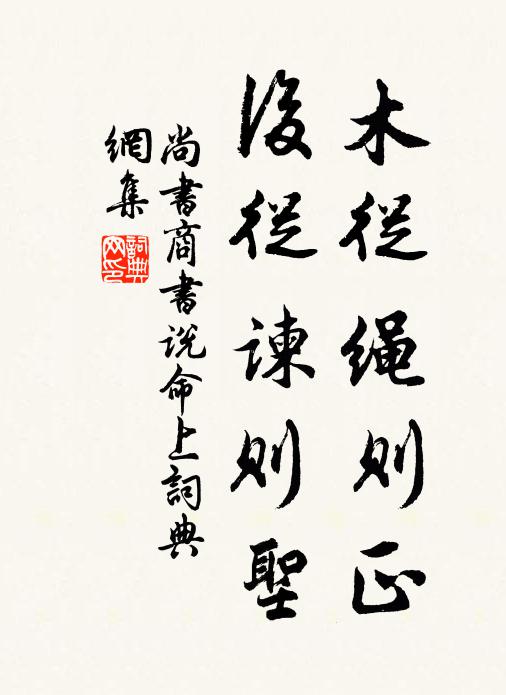 木從繩則正
後從諫則聖
尚書商書说命上詞典
網集
詞典网印